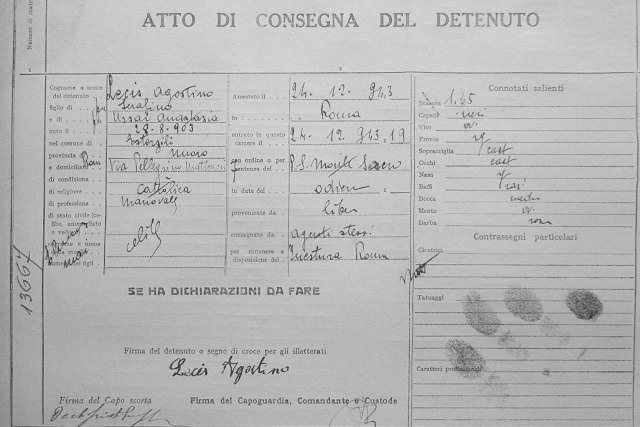 ATTO DI CONSEGNA DEL DETENUTO
Numero di matr
Cognome e nome
del detenuto Lecis Agostino
figlio di fu Serafino
e di Ussai Anastasia
nato il 28-8-903
nel comune di Esterzili
provincia Nuoro
e domiciliato Via Pellegrino Matteucci
di condizione
di religione Cattolica
di professione Manovale
di stato civile (ce-
libe, ammogliato
o vedovo) celibe
e nome
13667
Arrestato il 24. 12. 943
in Roma
entrato in questo
carcere il 24-12 943, 19
per ordine o per
sentenza del P.S.
in data del odierna
proveniente da libertà
consegnato da agenti stessi
per rimanere a
disposizione del Questura Roma
Connotati salienti
Statura 1.65
Capelli neri
Viso ov.
Fronte
Sopracciglia cast
Occhi cast
Naso
Baffi rasi
Bocca media
Mento ov.
Barba rasa
Contrassegni particolari
Cicatrici
Tatuaggi
Caratteri professionali
SE HA DICHIARAZIONI DA FARE
Firma del detenuto o segno di croce per gli illetterati
Lecis Agostino
Firma del Capo scorta
Firma del Capoguardia, Comandante o Custode